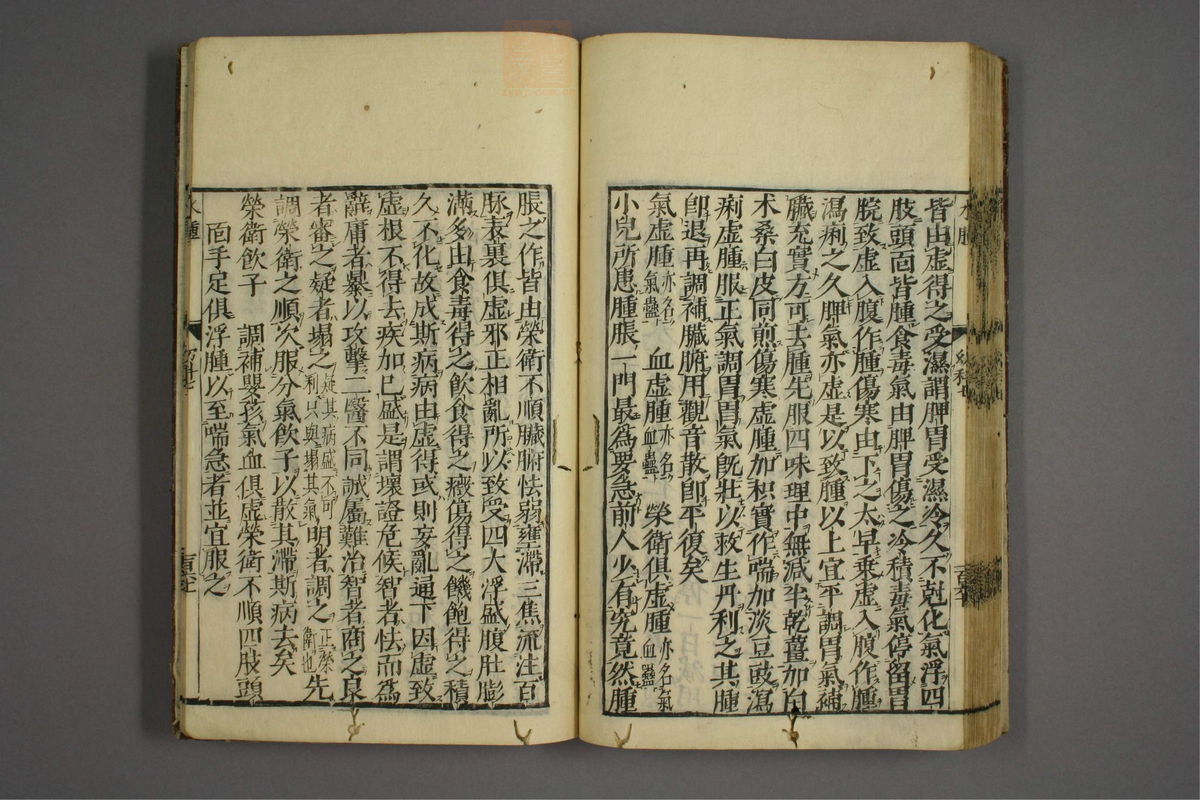 皆由虚得之受濕謂脾胃受濕冷久不尅化氣浮四
肢頭面皆腫食毒氣由脾胃傷之冷積毒氣停留胃
脘致虚入腹作腫傷寒由下之太早乗虚入腹作腫
瀉痢之久脾氣亦虚是以致腫以上宜平調胃氣補
臓充實方可去腫先服四味理中無減半乾薑加白
术桑白皮同煎傷寒虚腫加枳實作喘加淡豆豉瀉
痢虚腫服正氣調胃胃氣旣壮以救生丹利之其腫
卽退再調補臓腑用觀音散卽平復矣
氣虚腫亦名氣蠱 血虚腫亦名血蠱 榮衛俱虚腫亦名氣血蠱
小兒所患腫脹一門最爲要急前人少有究竟然腫
脹之作皆由榮衛不順臓腑怯弱壅滞三焦流注百
脉表裏俱虚邪正相亂所以致受四大浮盛腹肚膨
滿多由食毒得之飮食得之癥傷得之饑飽得之積
久不化故成斯病病由虚得或則妄亂通下因虚致
虚根不得去疾加已盛是謂壞證危候智者怯而爲
辭庸者暴以攻擊二醫不同誠屬難治智者商之良
者審之疑者塌之疑其病盛不可利只與塌其氣明者調之正榮衛也先
調榮衛之順次服分氣飮子以散其滞斯病去矣
榮衛飮子 調補嬰孩氣血俱虚榮衛不順四肢頭
面手足俱浮腫以至喘急者並宜服之
水腫